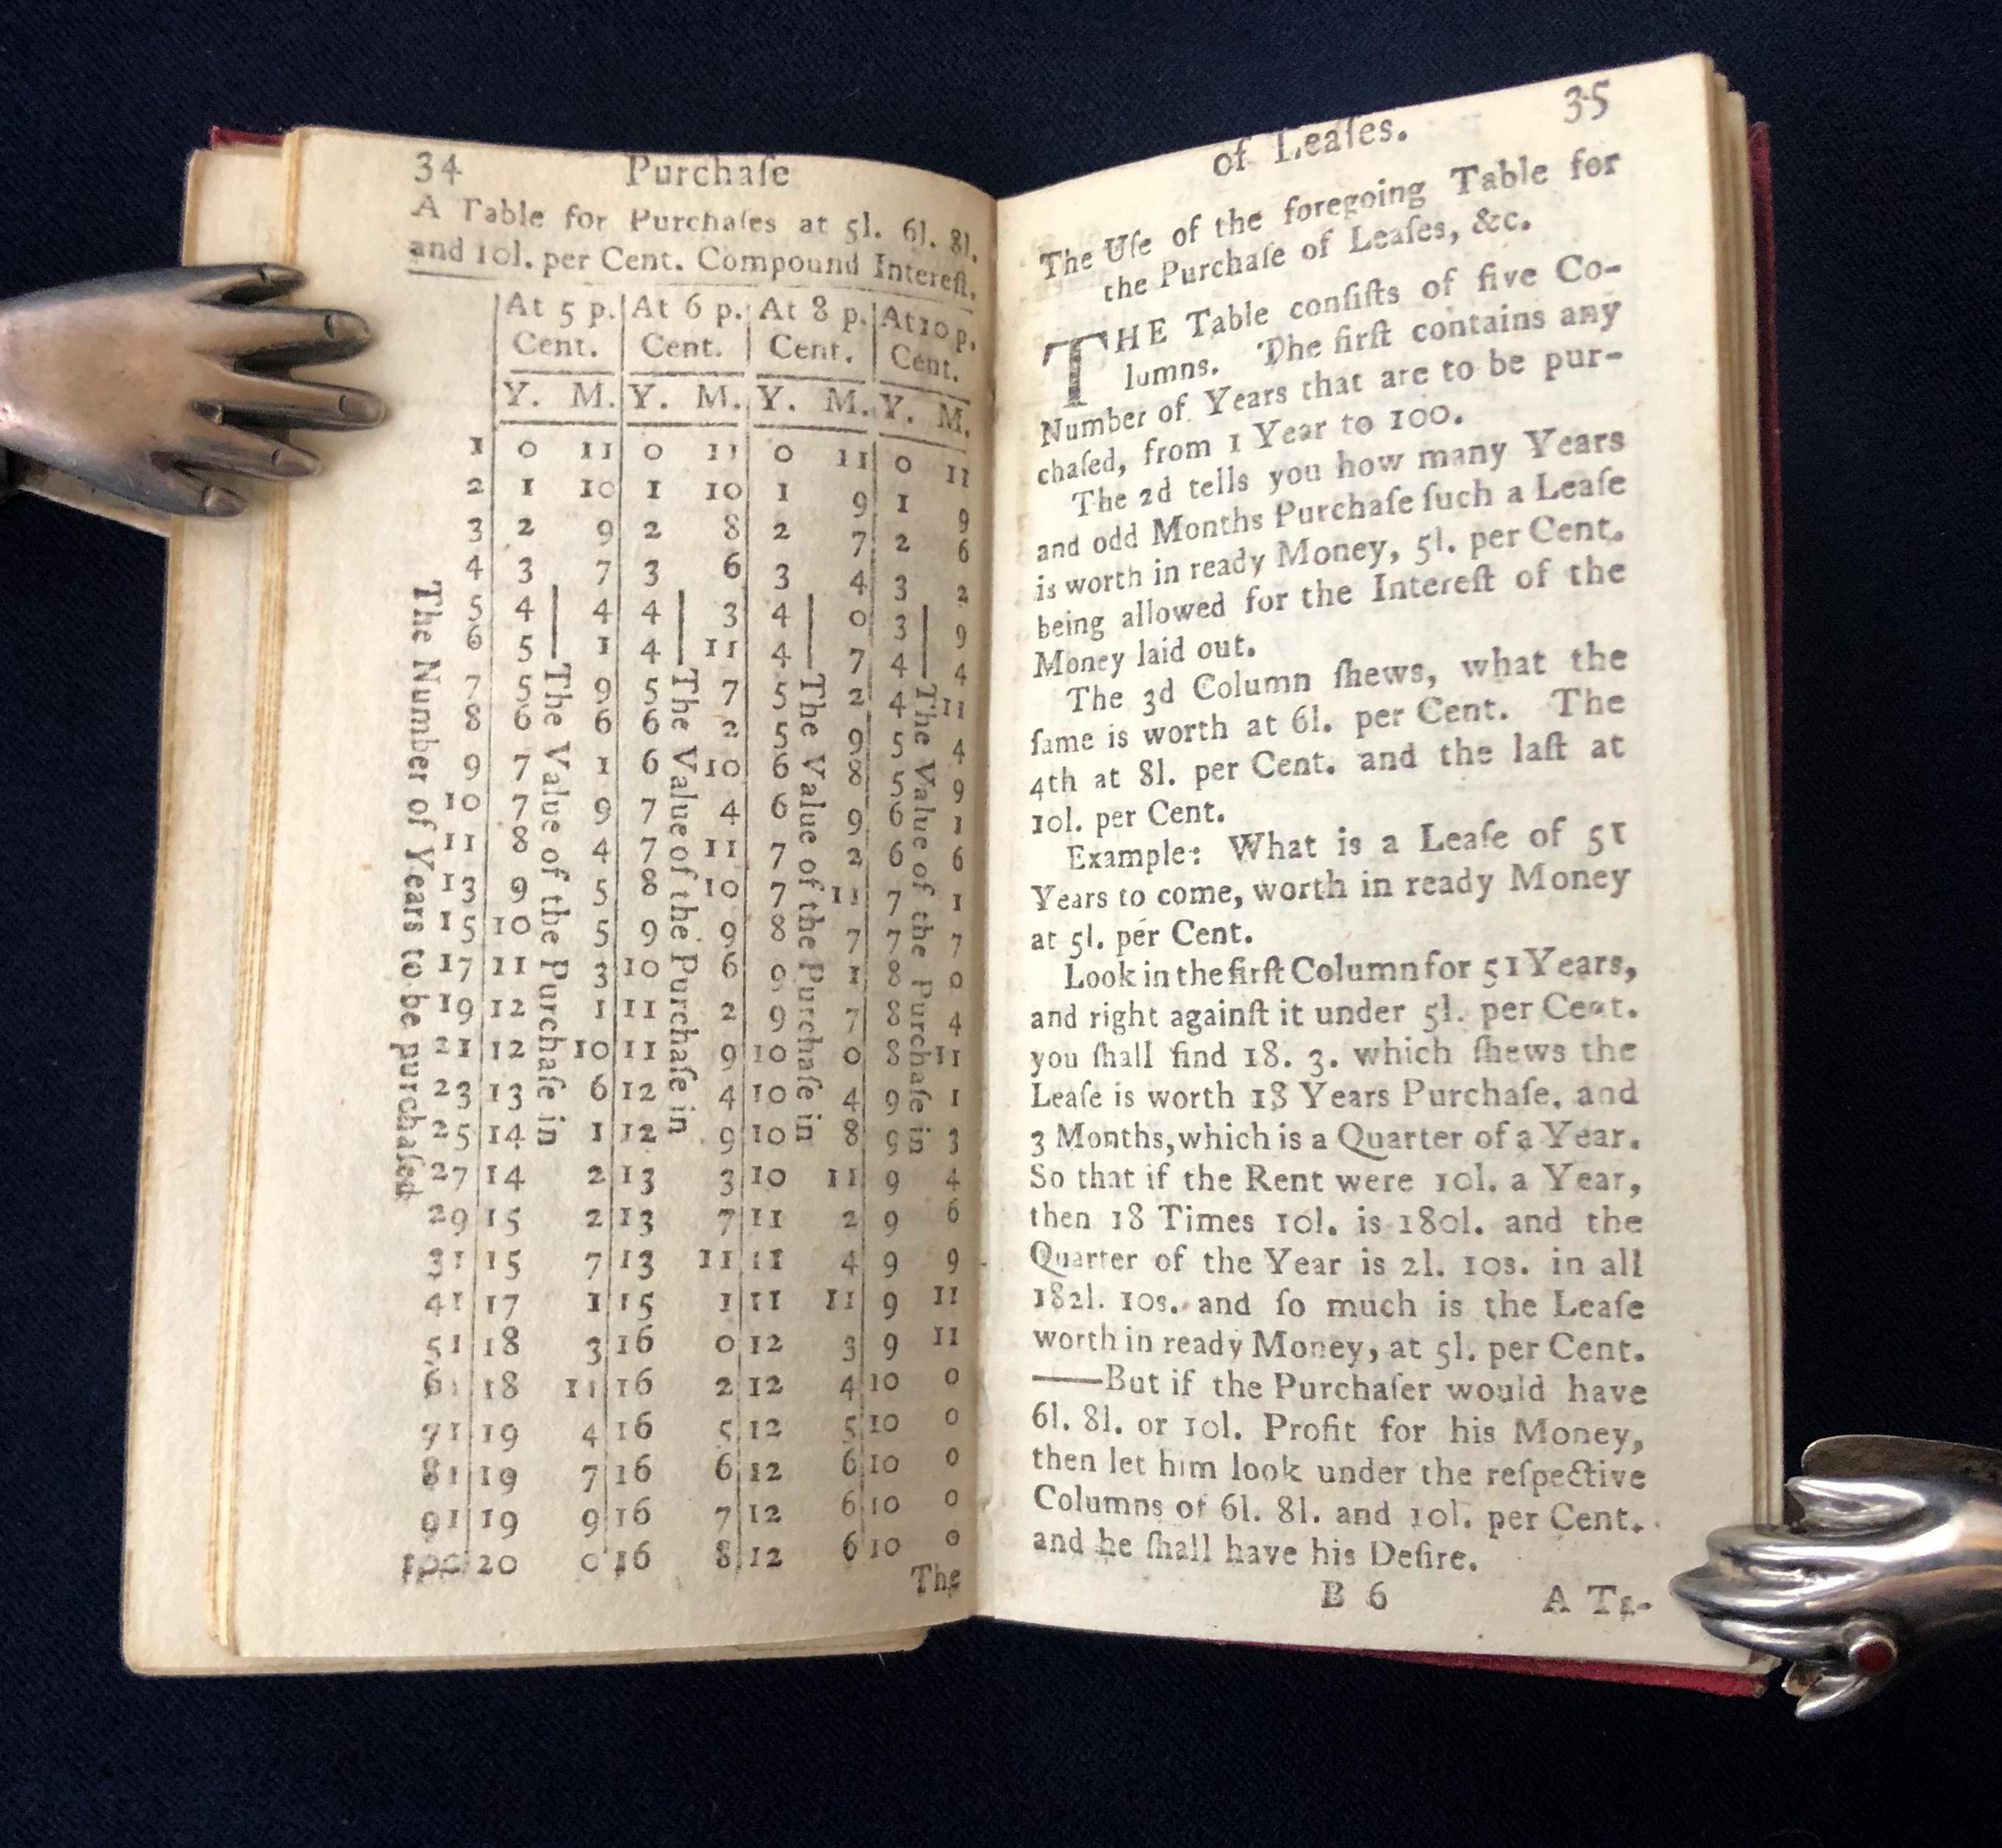 34 Purchaſe
A Table for Purchaſes at 5l. 6l. 8l.
and 10l. per Cent. Compound Intereſt.
At 5 p. At 6 p. At 8 p. At 10 p.
Cent. Cent. Cent. Cent.
Y. M. Y. M. Y. M. Y. M.
1 0 11 0 11 0 11 0 11
2 1 10 1 10 1 9 1 9
3 2 9 2 8 2 7 2 6
4 3 7 3 6 3 4 3 2
5 4 4 4 3 4 0 3 9
6 5 1 4 11 4 7 4 4
7 5 9 5 7 5 2 4 11
8 6 6 6 2 5 9 5 4
9 7 1 6 10 6 8 5 9
10 7 9 7 4 6 9 6 1
11 8 4 7 11 7 2 6 6
13 9 5 8 10 7 11 7 1
15 10 5 9 9 8 7 7 7
17 11 3 10 6 1 8 0
19 12 1 11 2 9 7 8 4
21 12 10 11 9 10 0 8 11
23 13 6 12 4 10 4 9 1
25 14 1 12 9 10 8 9 3
27 14 2 13 3 10 11 9 4
29 15 2 13 7 11 2 9 6
31 15 7 13 11 11 4 9 9
41 17 1 15 1 11 11 9 11
51 18 3 16 0 12 3 9 11
61 18 11 16 2 12 4 10 0
71 19 4 16 5 12 5 10 0
81 19 7 16 6 12 6 10 0
91 19 9 16 7 12 6 10 0
100 20 0 16 8 12 6 10 0
The Number of Years to be purchaſed
The Value of the Purchaſe in
The Value of the Purchaſe in
The Value of the Purchaſe in
The Value of the Purchaſe in
The
of Leaſes. 35
The Uſe of the foregoing Table for
the Purchaſe of Leaſes, &c.
THE Table conſiſts of five Co-
lumns. The firſt contains any
Number of Years that are to be pur-
chaſed, from 1 Year to 100.
The 2d tells you how many Years
and odd Months Purchaſe ſuch a Leaſe
is worth in ready Money, 5l. per Cent.
being allowed for the Intereſt of the
Money laid out.
The 3d Column ſhews, what the
ſame is worth at 6l. per Cent. The
4th at 8l. per Cent. and the laſt at
10l. per Cent.
Example: What is a Leaſe of 51
Years to come, worth in ready Money
at 5l. per Cent.
Look in the firſt Column for 51 Years,
and right againſt it under 5l. per Cent.
you ſhall find 18. 3. which ſhews the
Leaſe is worth 18 Years Purchaſe, and
3 Months, which is a Quarter of a Year.
So that if the Rent were 10l. a Year,
then 18 Times 10l. is 180l. and the
Quarter of the Year is 2l. 10s. in all
182l. 10s. and ſo much is the Leaſe
worth in ready Money, at 5l. per Cent.
——But if the Purchaſer would have
6l. 8l. or 10l. Profit for his Money,
then let him look under the reſpective
Columns of 6l. 8l. and 10l. per Cent.
and he ſhall have his Deſire.
B 6 A Ta-